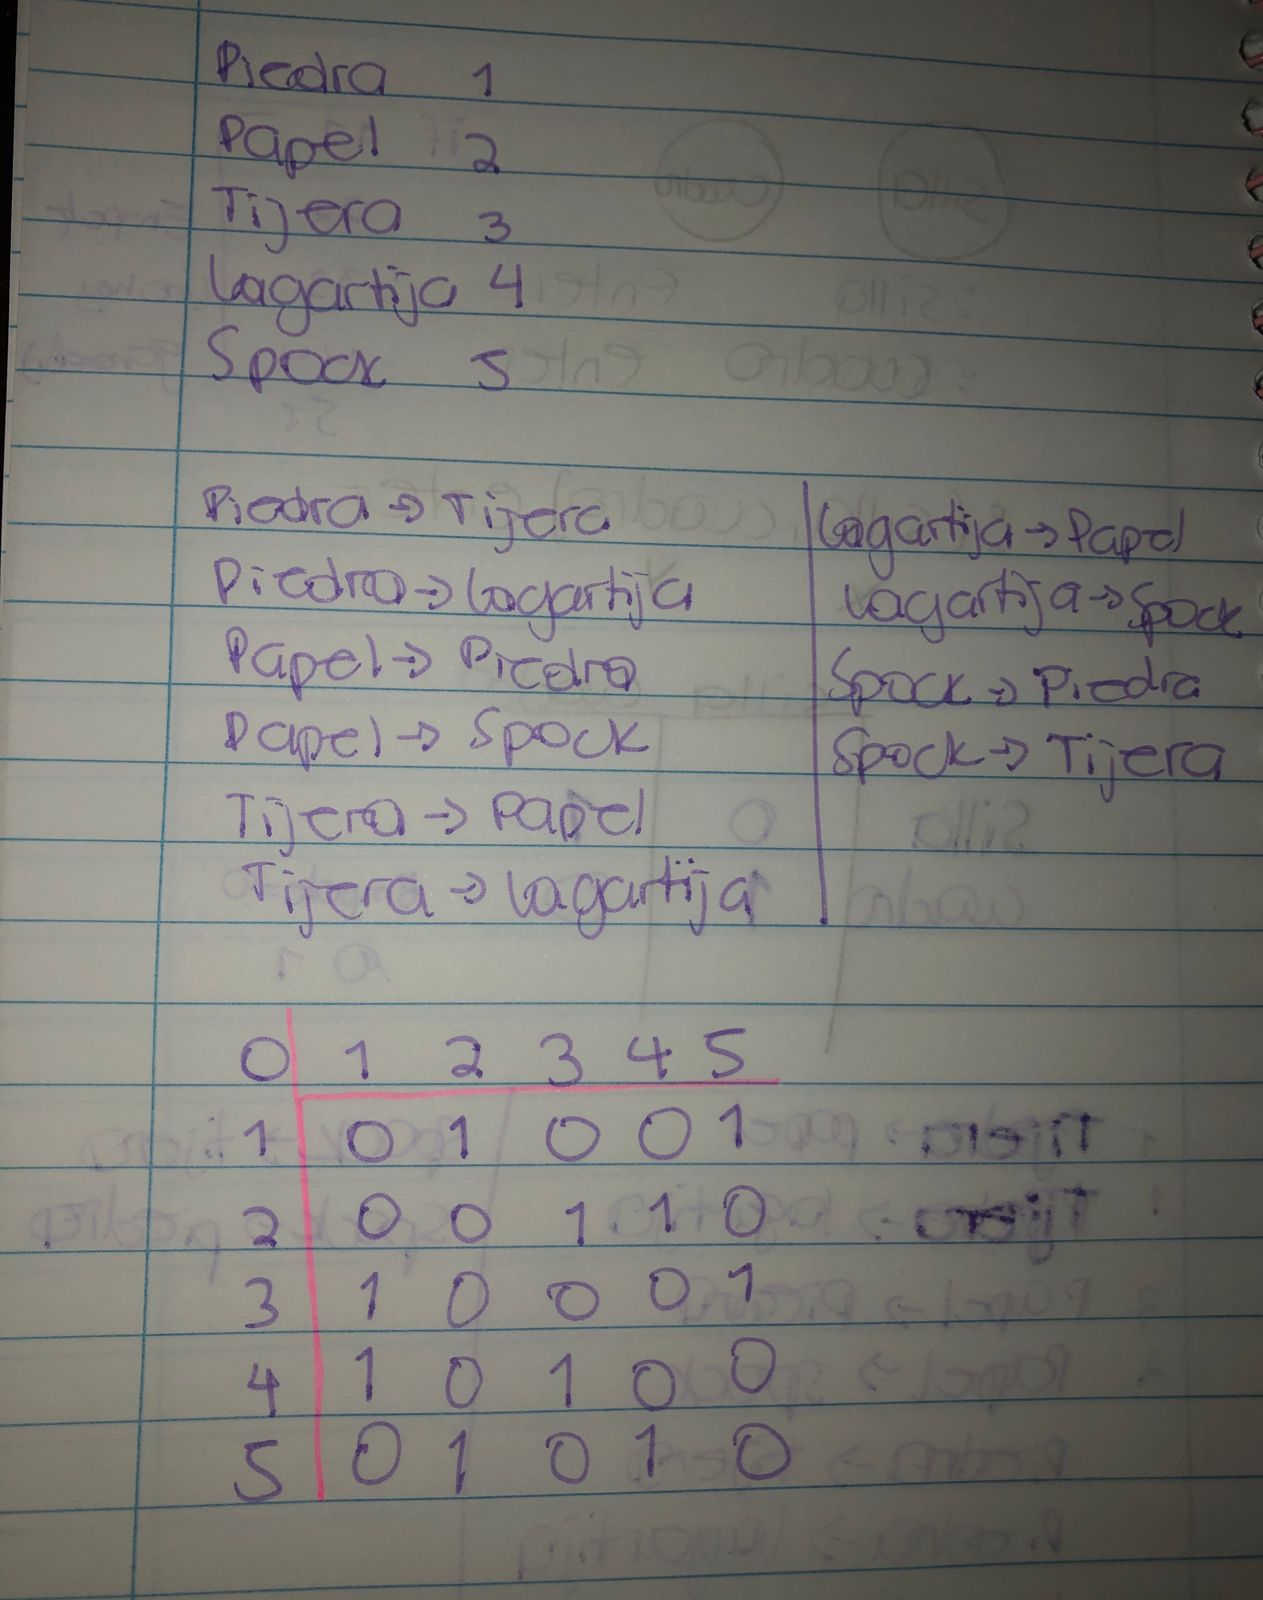 Piedra 1
Papel 2
Tijera 3
Lagartija 4
Spock 5
Piedra → Tijera
Piedra → Lagartija
Papel → Piedra
Papel → Spock
Tijera → Papel
Tijera → Lagartija
Lagartija → Papel
Lagartija → Spock
Spock → Piedra
Spock → Tijera
0 1 2 3 4 5
1 0 1 0 0 1
2 0 0 1 1 0
3 1 0 0 0 1
4 1 0 1 0 0
5 0 1 0 1 0